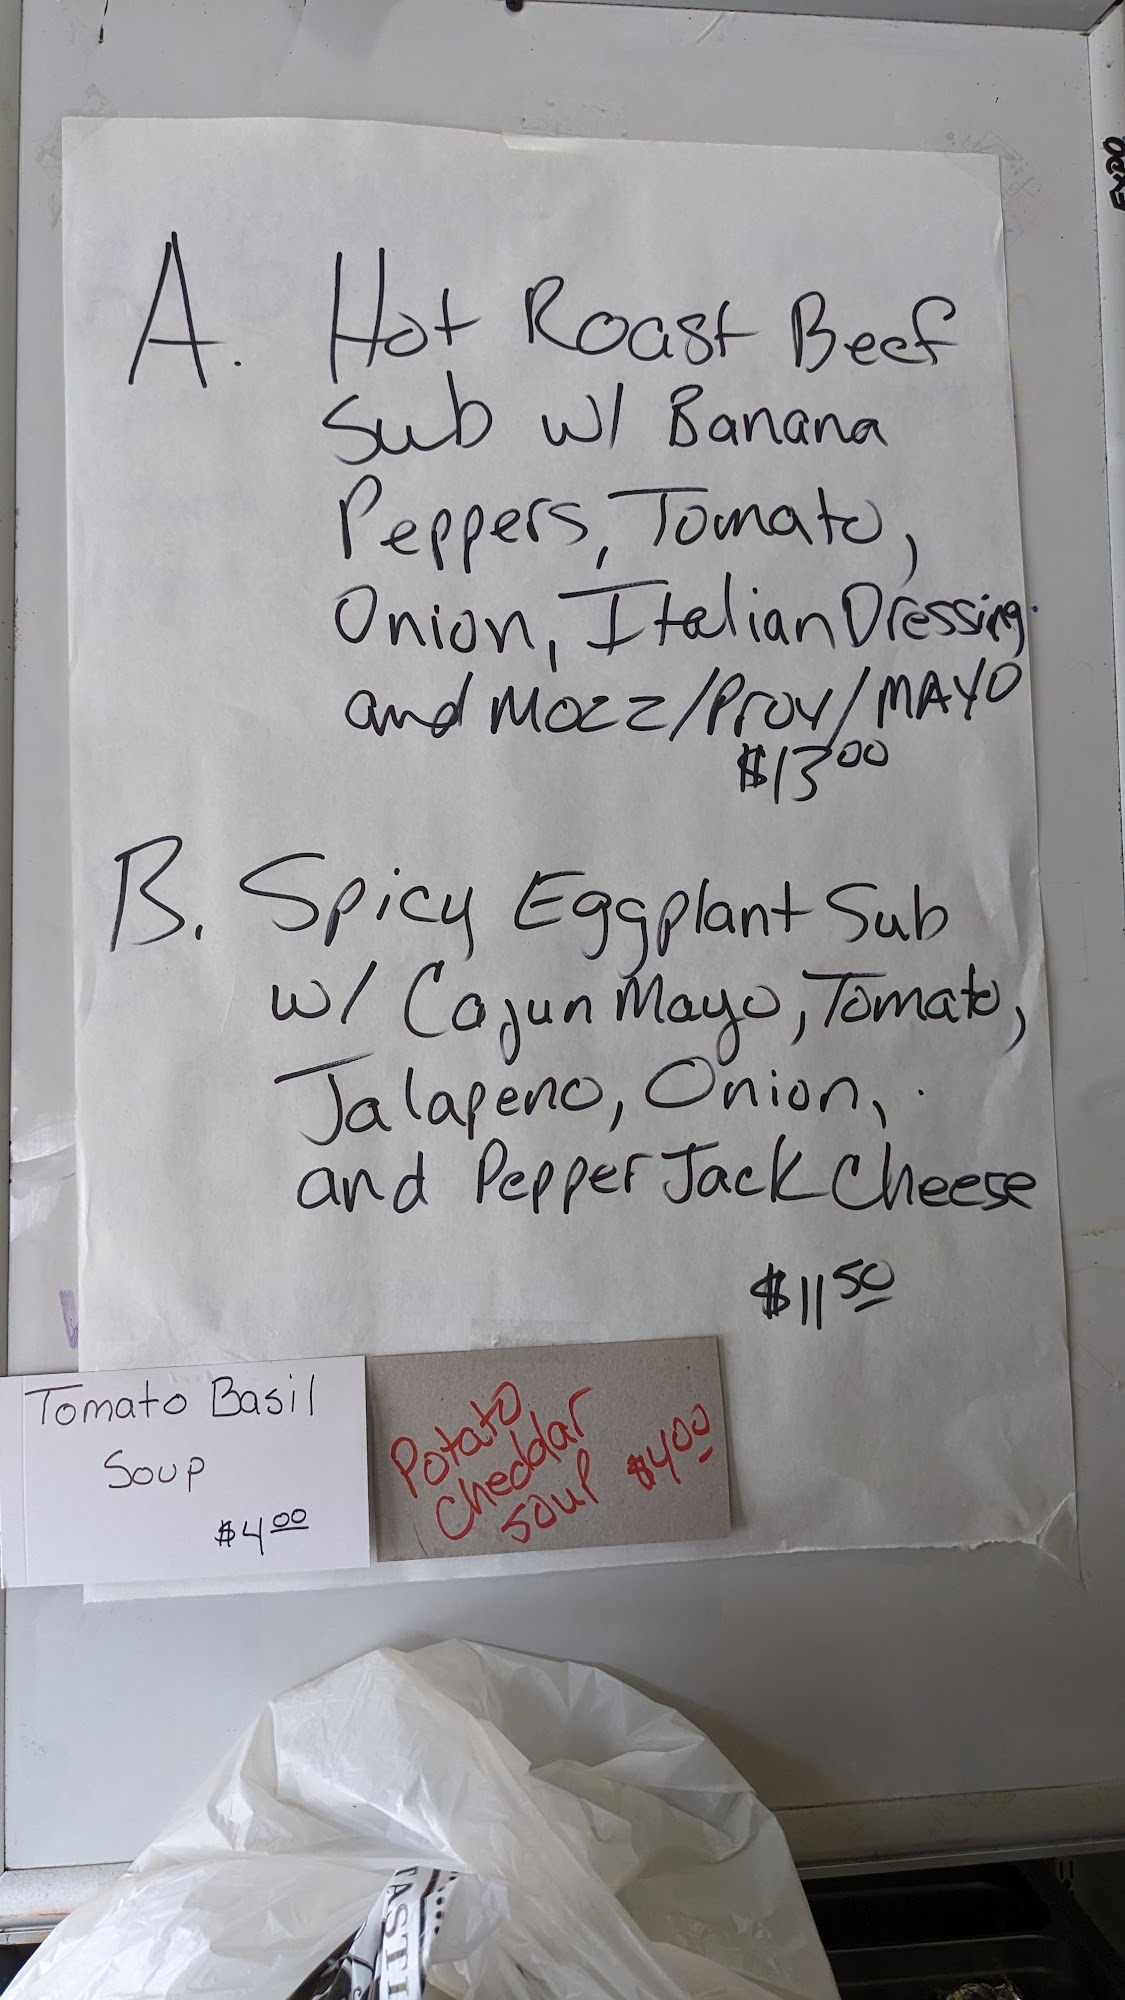 A. Hot Roast Beef
Sub w/ Banana
Peppers, Tomato,
Onion, Italian Dressing
and Mozz/Prov/MAYO
$13.00
B. Spicy Eggplant Sub
w/ Cajun Mayo, Tomato,
Jalapeno, Onion,
and Pepper Jack Cheese
$11.50
Tomato Basil
Soup
$4.00
Potato
Cheddar
Soup $4.00